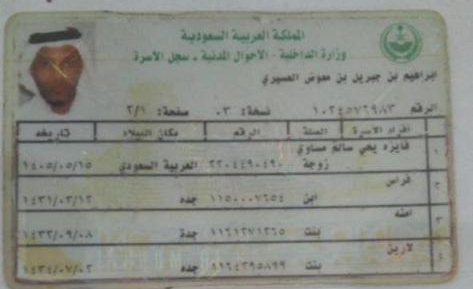 المملكة العربية السعودية
وزارة الداخلية - الأحوال المدنية - سجل الأسرة
ابراهيم بن جبريل بن معوض العسيري
الرقم ١٠٢٤٥٧٦٩٨٣ نسخة: ٠٣ صفحة: ٢/١
أفراد الأسرة الصلة الرقم مكان الميلاد تاريخه
١ فايزه يحي سالم مساوي
زوجة ٢٢٠٤٤٩٠٤٩٠ العربية السعودي ١٤٠٥/٠٥/١٥
٢ فراس
ابن ١١٥٠٠٠٧٦٥٤ جده ١٤٣١/٠٣/١٢
٣ امنه
بنت ١١٦١٢٧١٢٦٥ جدة ١٤٣٢/٠٩/٠٨
٤ لارين
بنت ١١٦٤٣٩٥٨٩٩ جده ١٤٣٤/٠٧/٠٢